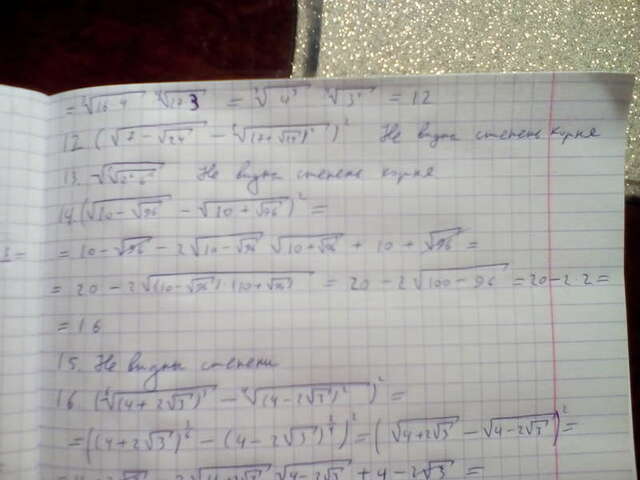 = ∛(16·4) ∛(27·3) = ∛(4³) ∛(3³) = 12
12. (√(7-√24) - √((7+√24)²))² Не видна степень корня
13. Не видна степень корня
14. (√(10-√96) - √(10+√96))² =
= 10-√96 - 2√(10-√96) √(10+√96) + 10 + √96 =
= 20 - 2√((10-√96)·(10+√96)) = 20 - 2√(100-96) = 20-2·2 =
= 16
15. Не видны степени
16. (⁶√((4+2√3)³) - ⁴√((4-2√3)²))² =
= ((4+2√3)^(3/6) - (4-2√3)^(2/4))² = (√(4+2√3) - √(4-2√3))² =
= 4+2√3 - 2√(4+2√3) √(4-2√3) + 4-2√3 =